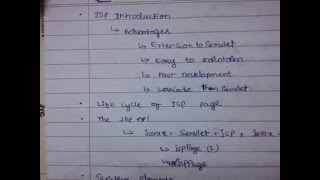 • JSP Introduction
↳ Advantages
↳ Extension to Servlet
↳ Easy to maintain
↳ Fast Development
↳ Less code than Servlet
• Life cycle of JSP page
• The JSP API
↳ javax.servlet.jsp & javax
↳ jspPage (I)
↳ JspPage
• Scripting elements